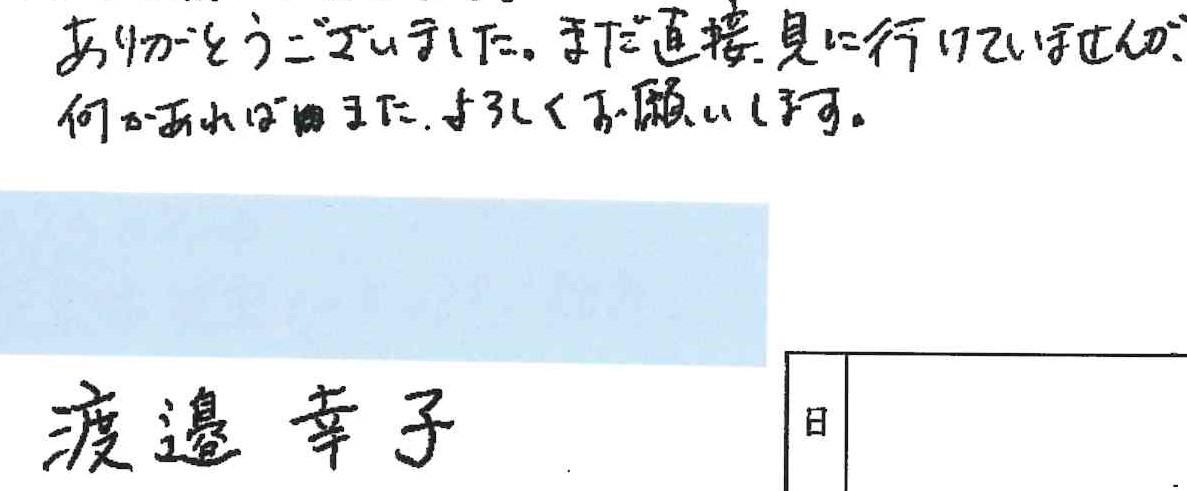 ありがとうございました。まだ直接見に行けていませんが、
何かあればまた、よろしくお願いします。
渡邉 幸子
日